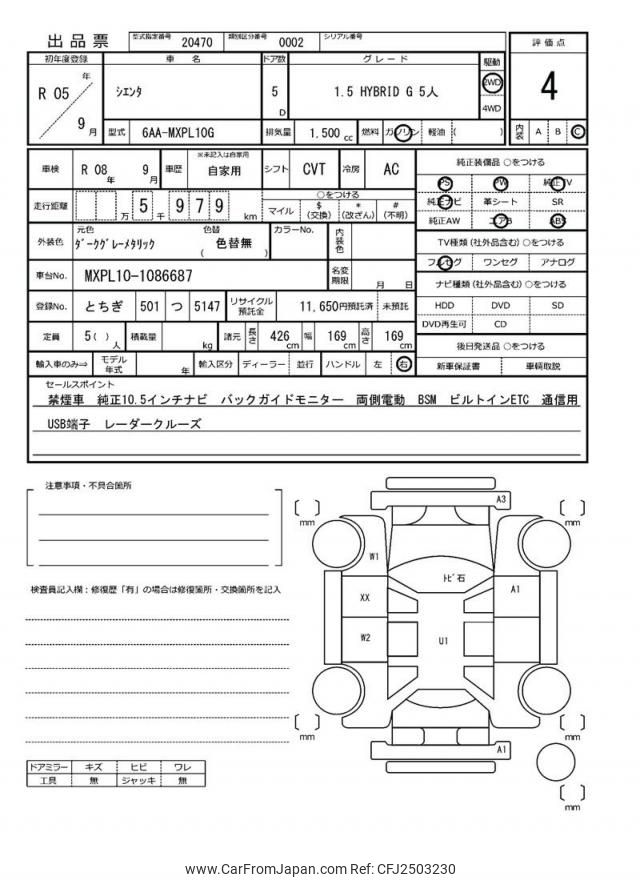 出品票 型式指定番号 20470 類別区分番号 0002 シリアル番号
初年度登録 車 名 ドア数 グレード 駆動 評価点
R 05 年 9 月 シエンタ 5 D 1.5 HYBRID G 5人 2WD 4WD 4
型式 6AA-MXPL10G 排気量 1.500 cc 燃料 ガソリン 軽油 ( ) 内装 A B C
車検 R 08 年 9 月 車歴 ※未記入は自家用 自家用 シフト CVT 冷房 AC 純正装備品 ○をつける
PS PW 純正TV
走行距離 万 5 千 9 7 9 km ○をつける 純正ナビ 革シート SR
マイル $ (交換) * (改ざん) # (不明) 純正AW エアB ABS
外装色 元色 ダークグレーメタリック 色替 ( 色替無 ) カラーNo. 内装色 TV種類 (社外品含む) ○をつける
フルセグ ワンセグ アナログ
車台No. MXPL10-1086687 名変期限 月 日 ナビ種類 (社外品含む) ○をつける
登録No. とちぎ 501 つ 5147 リサイクル預託金 11,650円預託済 未預託 HDD DVD SD
DVD再生可 CD
定員 5( ) 人 積載量 kg 諸元 長さ 426 cm 幅 169 cm 高さ 169 cm 後日発送品 ○をつける
輸入車のみ⇒ モデル年式 年 輸入区分 ディーラー 並行 ハンドル 左 右 新車保証書 車輌取説
セールスポイント
禁煙車 純正10.5インチナビ バックガイドモニター 両側電動 BSM ビルトインETC 通信用
USB端子 レーダークルーズ
注意事項・不具合箇所
検査員記入欄：修復歴「有」の場合は修復箇所・交換箇所を記入
A3
mm
mm
W1
トビ石
XX
A1
W2
U1
mm
mm
A1
mm
ドアミラー キズ ヒビ ワレ
工具 無 ジャッキ 無
www.CarFromJapan.com Ref: CFJ2503230